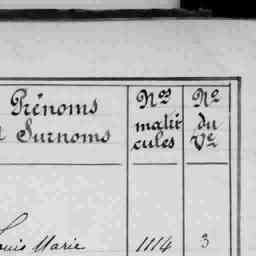 Prénoms
Surnoms
Nos
matri
cules
No
du
Ve
Louis Marie
1114
3